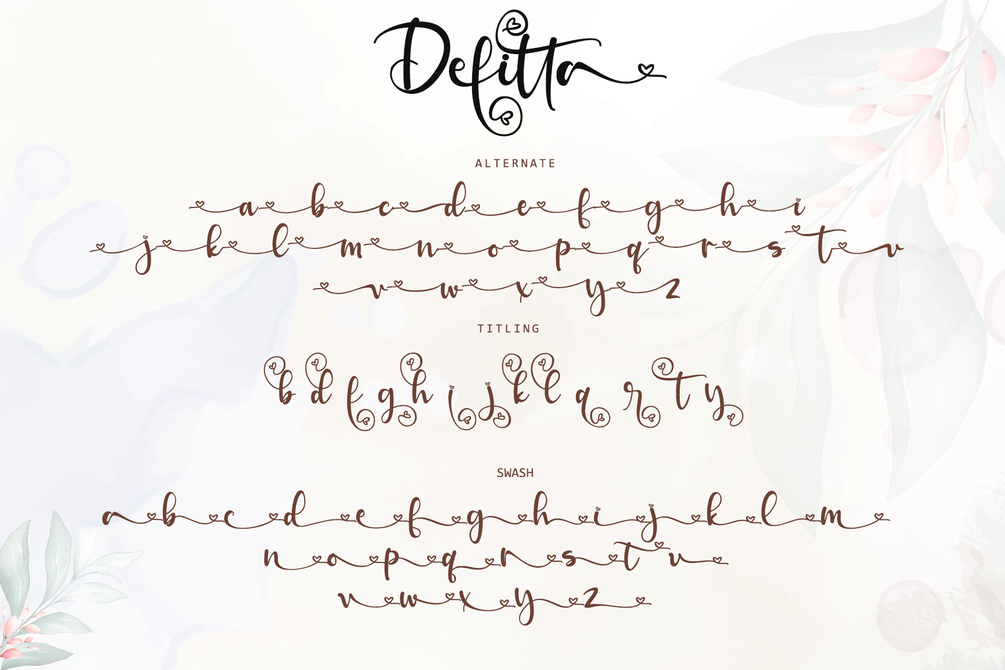 Defitta
ALTERNATE
a b c d e f g h i
j k l m n o p q r s t u
v w x y z
TITLING
b d f g h i j k l q r t y
SWASH
a b c d e f g h i j k l m
n o p q r s t u
v w x y z